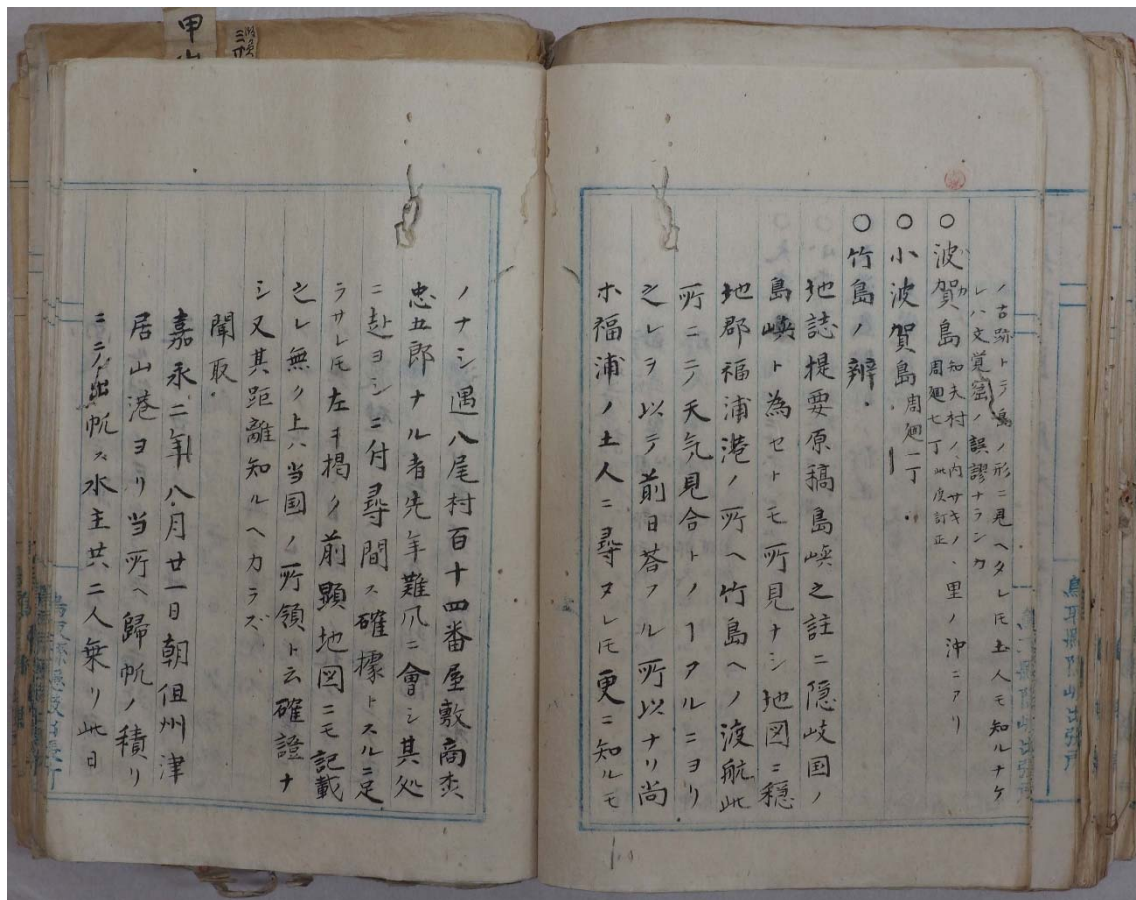 ノ古跡トテ島ノ形ニ見ヘタレ𪜈土人モ知ルナケ
レハ文覚窟ノ誤謬ナランカ
○波賀島 知夫村ノ内サキノ里ノ沖ニアリ
周廻七丁此度訂正
○小波賀島 周廻一丁
○竹島ノ辨
地誌提要原稿島嶼之註ニ隠岐国ノ
島嶼ト為セトモ所見ナシ地図ニ穏
地郡福浦港ノ所ヘ竹島ヘノ渡航此
所ニテ天気見合トノヿアルニヨリ
之レヲ以テ前日荅フル所以ナリ尚
ホ福浦ノ土人ニ尋ヌレ𪜈更ニ知ルモ
ノナシ遇八尾村百十四番屋敷高梨
忠五郎ナル者先年難风ニ會シ其処
ニ赴ヨシニ付尋問ス確據トスルニ足
ラサレ𪜈左ニ掲ク前顕地図ニモ記載
之レ無ク上ハ当国ノ所領ト云確證ナ
シ又其距離知ルヘカラズ
聞取
嘉永二年八月廿一日朝但州津
居山港ヨリ当所ヘ歸帆ノ積リ
ニテ出帆ス水主共二人乗リ此日
甲
鳥取縣隠岐出張所